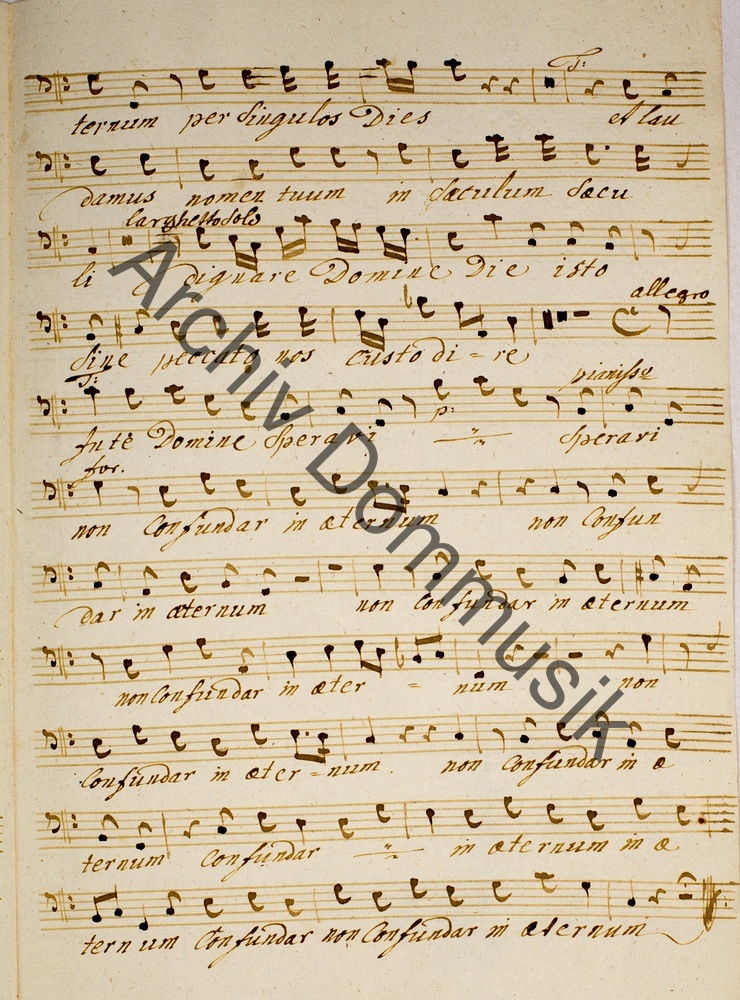 T:
ternum per Singulos Dies et lau
damus nomen tuum in Sæculum Sæcu
larghetto Solo
li dignare Domine Die isto
allegro
Sine peccato nos custodi = re
T: pianisso
In te Domine Speravi p: Speravi
for.
non Confundar in æternum non Confun
dar in æternum non Confundar in æternum
non Confundar in æter = num non
Confundar in æter = num non Confundar in æ
ternum Confundar in æternum in æ
ternum Confundar non Confundar in æternum
Archiv Dommusik